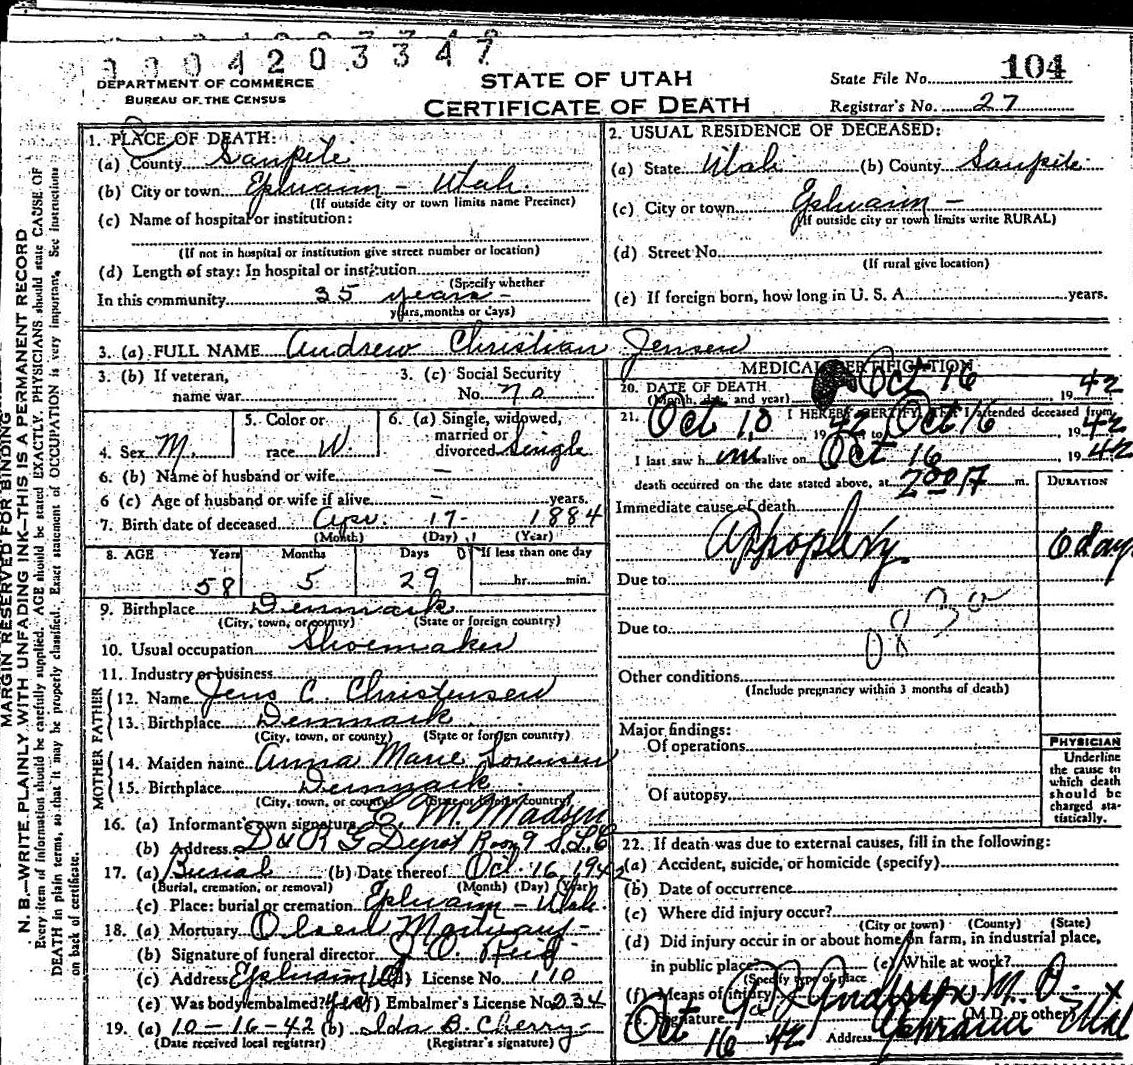 0004203347
DEPARTMENT OF COMMERCE
BUREAU OF THE CENSUS
STATE OF UTAH
CERTIFICATE OF DEATH
State File No. 104
Registrar's No. 27
MARGIN RESERVED FOR BINDING
N. B.—WRITE PLAINLY WITH UNFADING INK—THIS IS A PERMANENT RECORD
Every item of information should be carefully supplied. AGE should be stated EXACTLY. PHYSICIANS should state CAUSE OF
DEATH in plain terms, so that it may be properly classified. Exact statement of OCCUPATION is very important. See instructions
on back of certificate.
1. PLACE OF DEATH:
(a) County Sanpete
(b) City or town Ephraim – Utah.
(If outside city or town limits name Precinct)
(c) Name of hospital or institution:
(If not in hospital or institution give street number or location)
(d) Length of stay: In hospital or institution
(Specify whether
In this community 35 years –
years, months or days)
2. USUAL RESIDENCE OF DECEASED:
(a) State Utah (b) County Sanpete
(c) City or town Ephraim –
(If outside city or town limits write RURAL)
(d) Street No.
(If rural give location)
(e) If foreign born, how long in U. S. A. years.
3. (a) FULL NAME Andrew Christian Jensen
3. (b) If veteran,
name war
3. (c) Social Security
No. no
4. Sex M.
5. Color or
race W.
6. (a) Single, widowed,
married or
divorced Single
6. (b) Name of husband or wife –
6 (c) Age of husband or wife if alive – years.
7. Birth date of deceased Apr. 17 - 1884
(Month) (Day) (Year)
8. AGE Years Months Days If less than one day
58 5 29 hr. min.
9. Birthplace Denmark
(City, town, or county) (State or foreign country)
10. Usual occupation Shoemaker
11. Industry or business
FATHER
12. Name Jens C. Christensen
13. Birthplace Denmark
(City, town, or county) (State or foreign country)
MOTHER
14. Maiden name Anna Marie Sorensen
15. Birthplace Denmark
(City, town, or county) (State or foreign country)
16. (a) Informant's own signature E. M. Madsen
(b) Address D & R G Depot Room 9 S.L.C
17. (a) Burial (b) Date thereof Oct. 16, 1942
(Burial, cremation, or removal) (Month) (Day) (Year)
(c) Place: burial or cremation Ephraim – Utah.
18. (a) Mortuary Olsen Mortuary –
(b) Signature of funeral director
(c) Address Ephraim (d) License No. 110
(e) Was body embalmed? Yes (f) Embalmer's License No. 234
19. (a) 10-16-42 (b) Ida B. Cherry –
(Date received local registrar) (Registrar's signature)
MEDICAL CERTIFICATION
20. DATE OF DEATH
(Month, day, and year) Oct 16 1942
21. I HEREBY CERTIFY, THAT I attended deceased from
Oct 10, 1942 to Oct 16 1942
I last saw him alive on Oct 16 1942
death occurred on the date stated above, at 2 00 m.
DURATION
Immediate cause of death
Appoplexy 6 days
Due to
Due to 0830
Other conditions
(Include pregnancy within 3 months of death)
Major findings:
Of operations
Of autopsy
PHYSICIAN
Underline
the cause to
which death
should be
charged sta-
tistically.
22. If death was due to external causes, fill in the following:
(a) Accident, suicide, or homicide (specify)
(b) Date of occurrence
(c) Where did injury occur?
(City or town) (County) (State)
(d) Did injury occur in or about home, on farm, in industrial place,
in public place (e) While at work?
(Specify type of place
(f) Means of injury
Signature M. D.
(M.D. or other)
Oct 16 42 Address Ephraim Utah